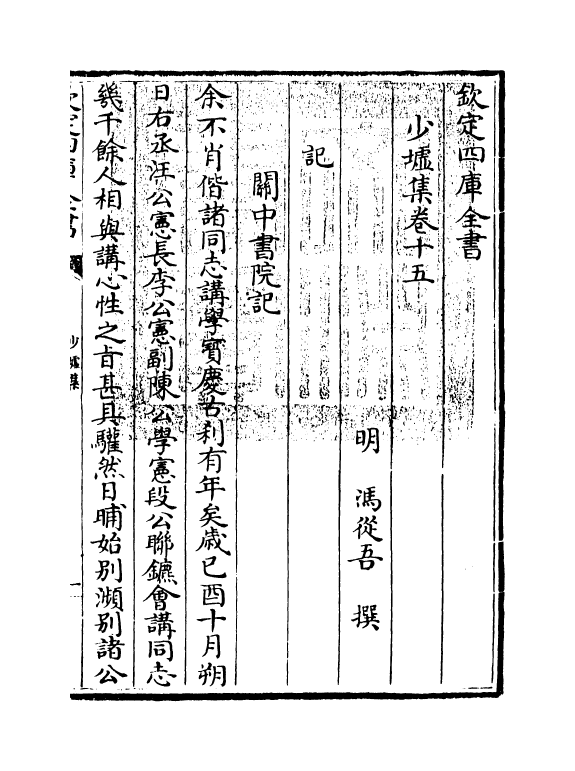 欽定四庫全書
少墟集卷十五
明 馮從吾 撰
記
關中書院記
余不肖偕諸同志講學寳慶古刹有年矣歳已酉十月朔
日右丞汪公憲長李公憲副陳公學憲段公聯鑣會講同志
幾千餘人相與講心性之㫖甚具驩然日晡始别瀕别諸公
欽定四庫全書
少墟集
一